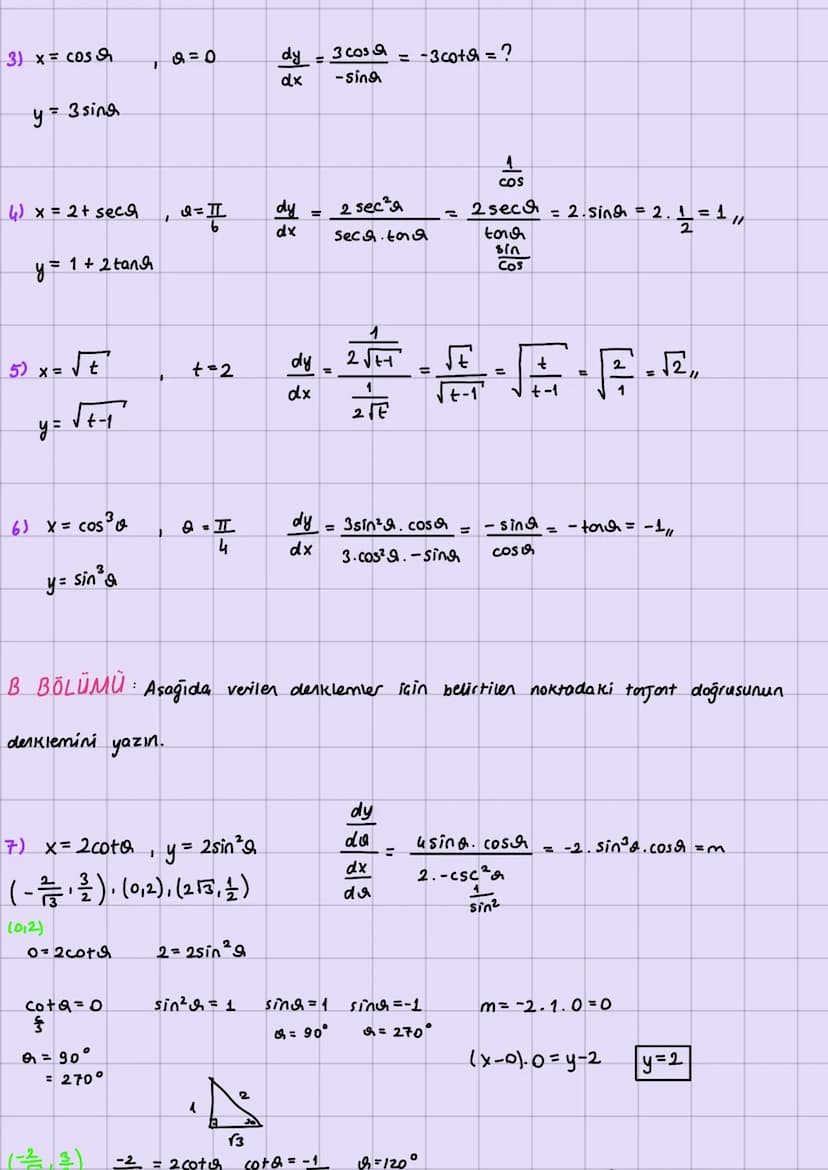 3) x = cosθ , θ = 0 dy/dx = 3cosθ/-sinθ = -3cotθ = ?
y = 3sinθ
4) x = 2 + secθ , θ = π/6 dy/dx = 2sec²θ/secθ.tanθ = 2secθ/tanθ = 2.sinθ = 2.1/2 = 1,,
1/cos
sin/cos
y = 1 + 2tanθ
5) x = √t , t = 2 dy/dx = (1/2√t-1)/(1/2√t) = √t/√t-1 = √(t/t-1) = √(2/1) = √2,,
y = √t-1
6) x = cos³θ , θ = π/4 dy/dx = 3sin²θ.cosθ/3.cos²θ.-sinθ = -sinθ/cosθ = -tanθ = -1,,
y = sin³θ
B BÖLÜMÜ : Aşağıda verilen denklemler için belirtilen noktadaki tanjant doğrusunun
denklemini yazın.
7) x = 2cotθ , y = 2sin²θ (dy/dθ)/(dx/dθ) = 4sinθ.cosθ/2.-csc²θ = -2.sin³θ.cosθ = m
1/sin²
(-2/√3, 3/2), (0,2), (2√3, 1/2)
(0,2)
0 = 2cotθ 2 = 2sin²θ
cotθ = 0 sin²θ = 1 sinθ = 1 sinθ = -1 m = -2.1.0 = 0
c/s
θ = 90° θ = 270°
θ = 90° (x-0).0 = y-2 y = 2
= 270°
1 2 30 √3
(-2/√3, 3/2) -2 = 2cotθ cotθ = -1 θ = 120°